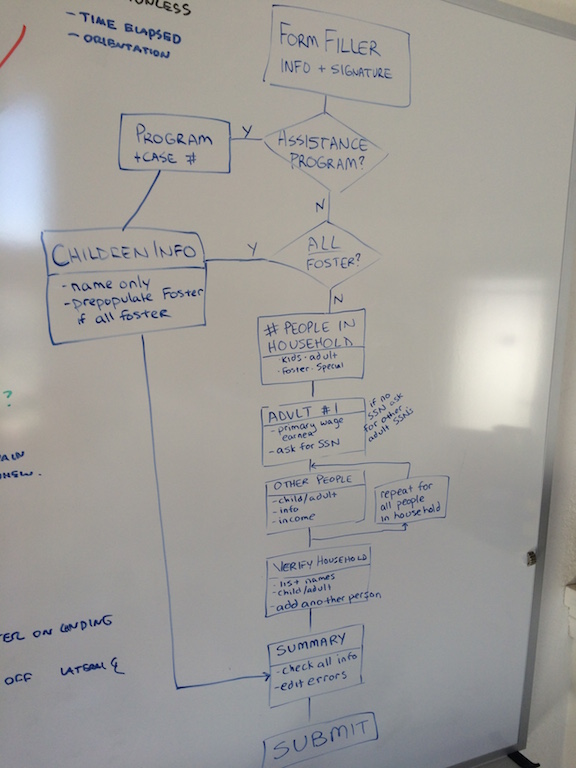 UNLESS
- TIME ELAPSED
- ORIENTATION
FORM FILLER
INFO + SIGNATURE
PROGRAM
+ CASE #
Y
ASSISTANCE
PROGRAM?
N
CHILDREN INFO
- name only
- prepopulate Foster
if all foster
Y
ALL
FOSTER?
N
# PEOPLE IN
HOUSEHOLD
- Kids - adult
- Foster - Special
ADULT #1
- primary wage
earner
- ask for SSN
if no
SSN ask
for other
adult SSN's
OTHER PEOPLE
- child/adult
- info
- income
repeat for
all people
in household
VERIFY HOUSEHOLD
- list names
- child/adult
- add another person
SUMMARY
- check all info
- edit errors
SUBMIT
?
OFF